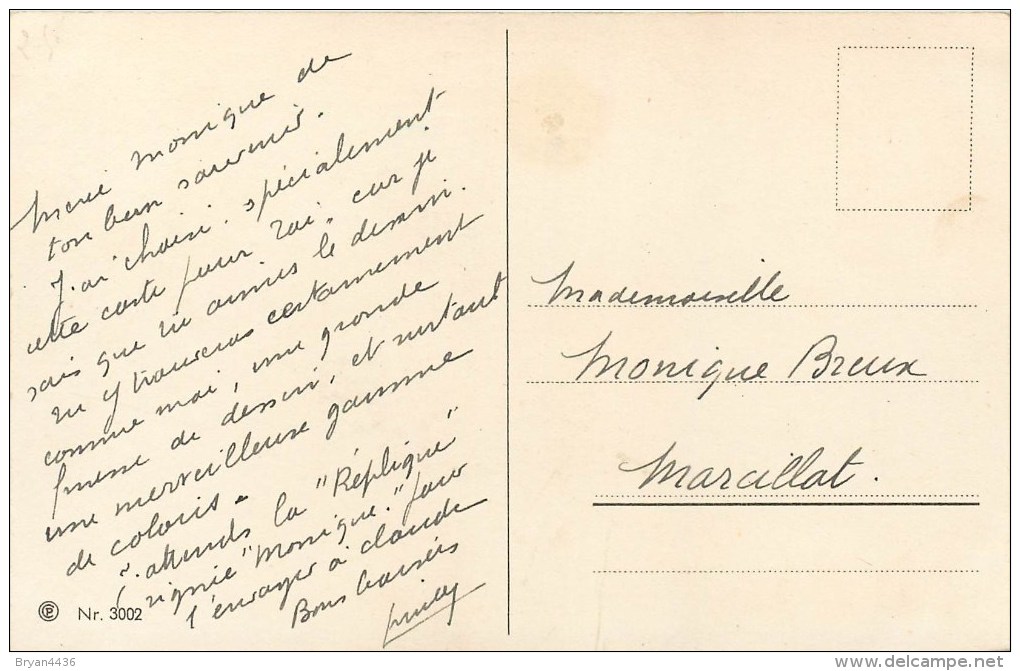 Merci Monique de
ton bon souvenir.
J'ai choisi spécialement
cette carte pour toi, car je
sais que tu aimes le dessin.
tu y trouveras certainement
comme moi, une grande
finesse de dessin, et surtout
une merveilleuse gamme
de coloris -
J'attends la "Réplique"
signée "Monique." pour
l'envoyer à Claude
Bons baisers
Nr. 3002
Mademoiselle
Monique Breux
Marcillat.
Bryan4436
delcampe.net